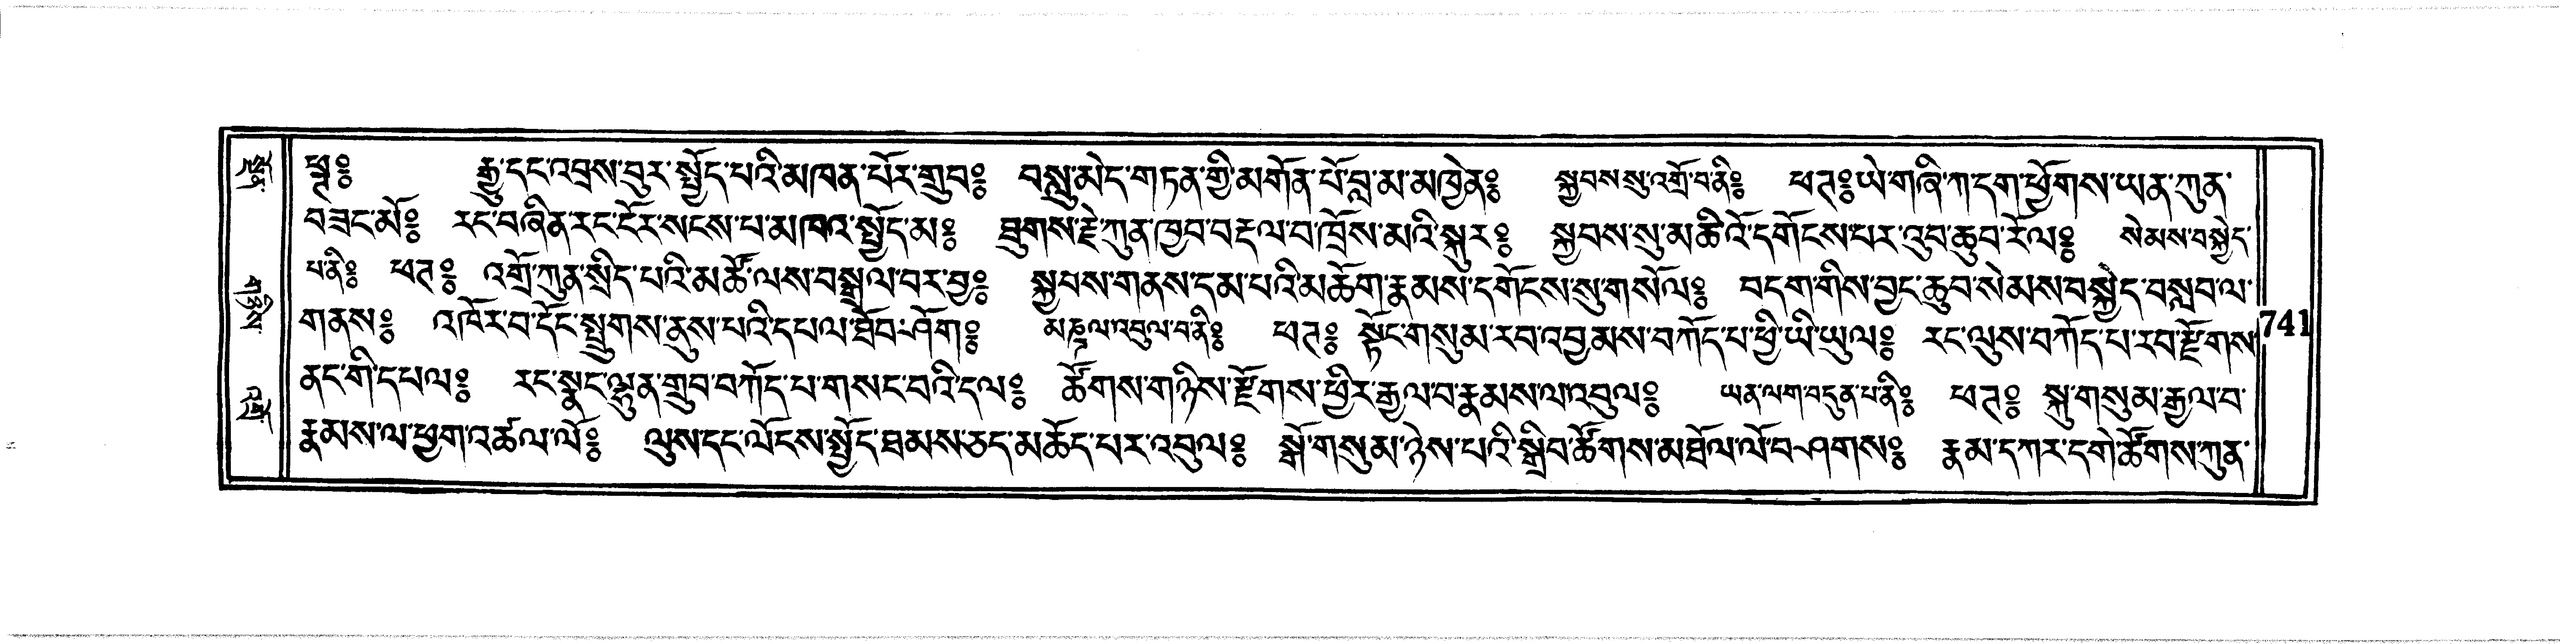 ཕྱྭ༔ རྒྱུ་དང་འབྲས་བུར་སྤྱོད་པའི་མཁན་པོར་གྲུབ༔ བསླུ་མེད་གཏན་གྱི་མགོན་པོ་བླ་མ་མཁྱེན༔ སྐྱབས་སུ་འགྲོ་བ་ནི༔ ཕཊ༔ ཡེ་གཞི་ཀ་དག་ཕྱོགས་ཡན་ཀུན་
བཟང་མོ༔ རང་བཞིན་རང་ངོར་སངས་པ་མཁའ་སྤྱོད་མ༔ ཐུགས་རྗེ་ཀུན་ཁྱབ་བརྡལ་བ་ཁྲོས་མའི་སྐུར༔ སྐྱབས་སུ་མཆིའོ་དགོངས་པར་འུབ་ཆུབ་རོལ༔ སེམས་བསྐྱེད་
པ་ནི༔ ཕཊ༔ འགྲོ་ཀུན་སྲིད་པའི་མཚོ་ལས་བསྒྲལ་བར་བྱ༔ སྐྱབས་གནས་དམ་པའི་མཆོག་རྣམས་དགོངས་སུ་གསོལ༔ བདག་གིས་བྱང་ཆུབ་སེམས་བསྐྱེད་བསླབ་ལ་
གནས༔ འཁོར་བ་དོང་སྤྲུགས་ནུས་པའི་དཔལ་ཐོབ་ཤོག༔ མཎྜལ་འབུལ་བ་ནི༔ ཕཊ༔ སྟོང་གསུམ་རབ་འབྱམས་བཀོད་པ་ཕྱི་ཡི་ཡུལ༔ རང་ལུས་བཀོད་པ་རབ་རྫོགས་
ནང་གི་དཔལ༔ རང་སྣང་ལྷུན་གྲུབ་བཀོད་པ་གསང་བའི་དལ༔ ཚོགས་གཉིས་རྫོགས་ཕྱིར་རྒྱལ་བ་རྣམས་ལ་འབུལ༔ ཡན་ལག་བདུན་པ་ནི༔ ཕཊ༔ སྐུ་གསུམ་རྒྱལ་བ་
རྣམས་ལ་ཕྱག་འཚལ་ལོ༔ ལུས་དང་ལོངས་སྤྱོད་ཐམས་ཅད་མཆོད་པར་འབུལ༔ སྒོ་གསུམ་ཉེས་པའི་སྒྲིབ་ཚོགས་མཐོལ་ལོ་བཤགས༔ རྣམ་དཀར་དགེ་ཚོགས་ཀུན་
741